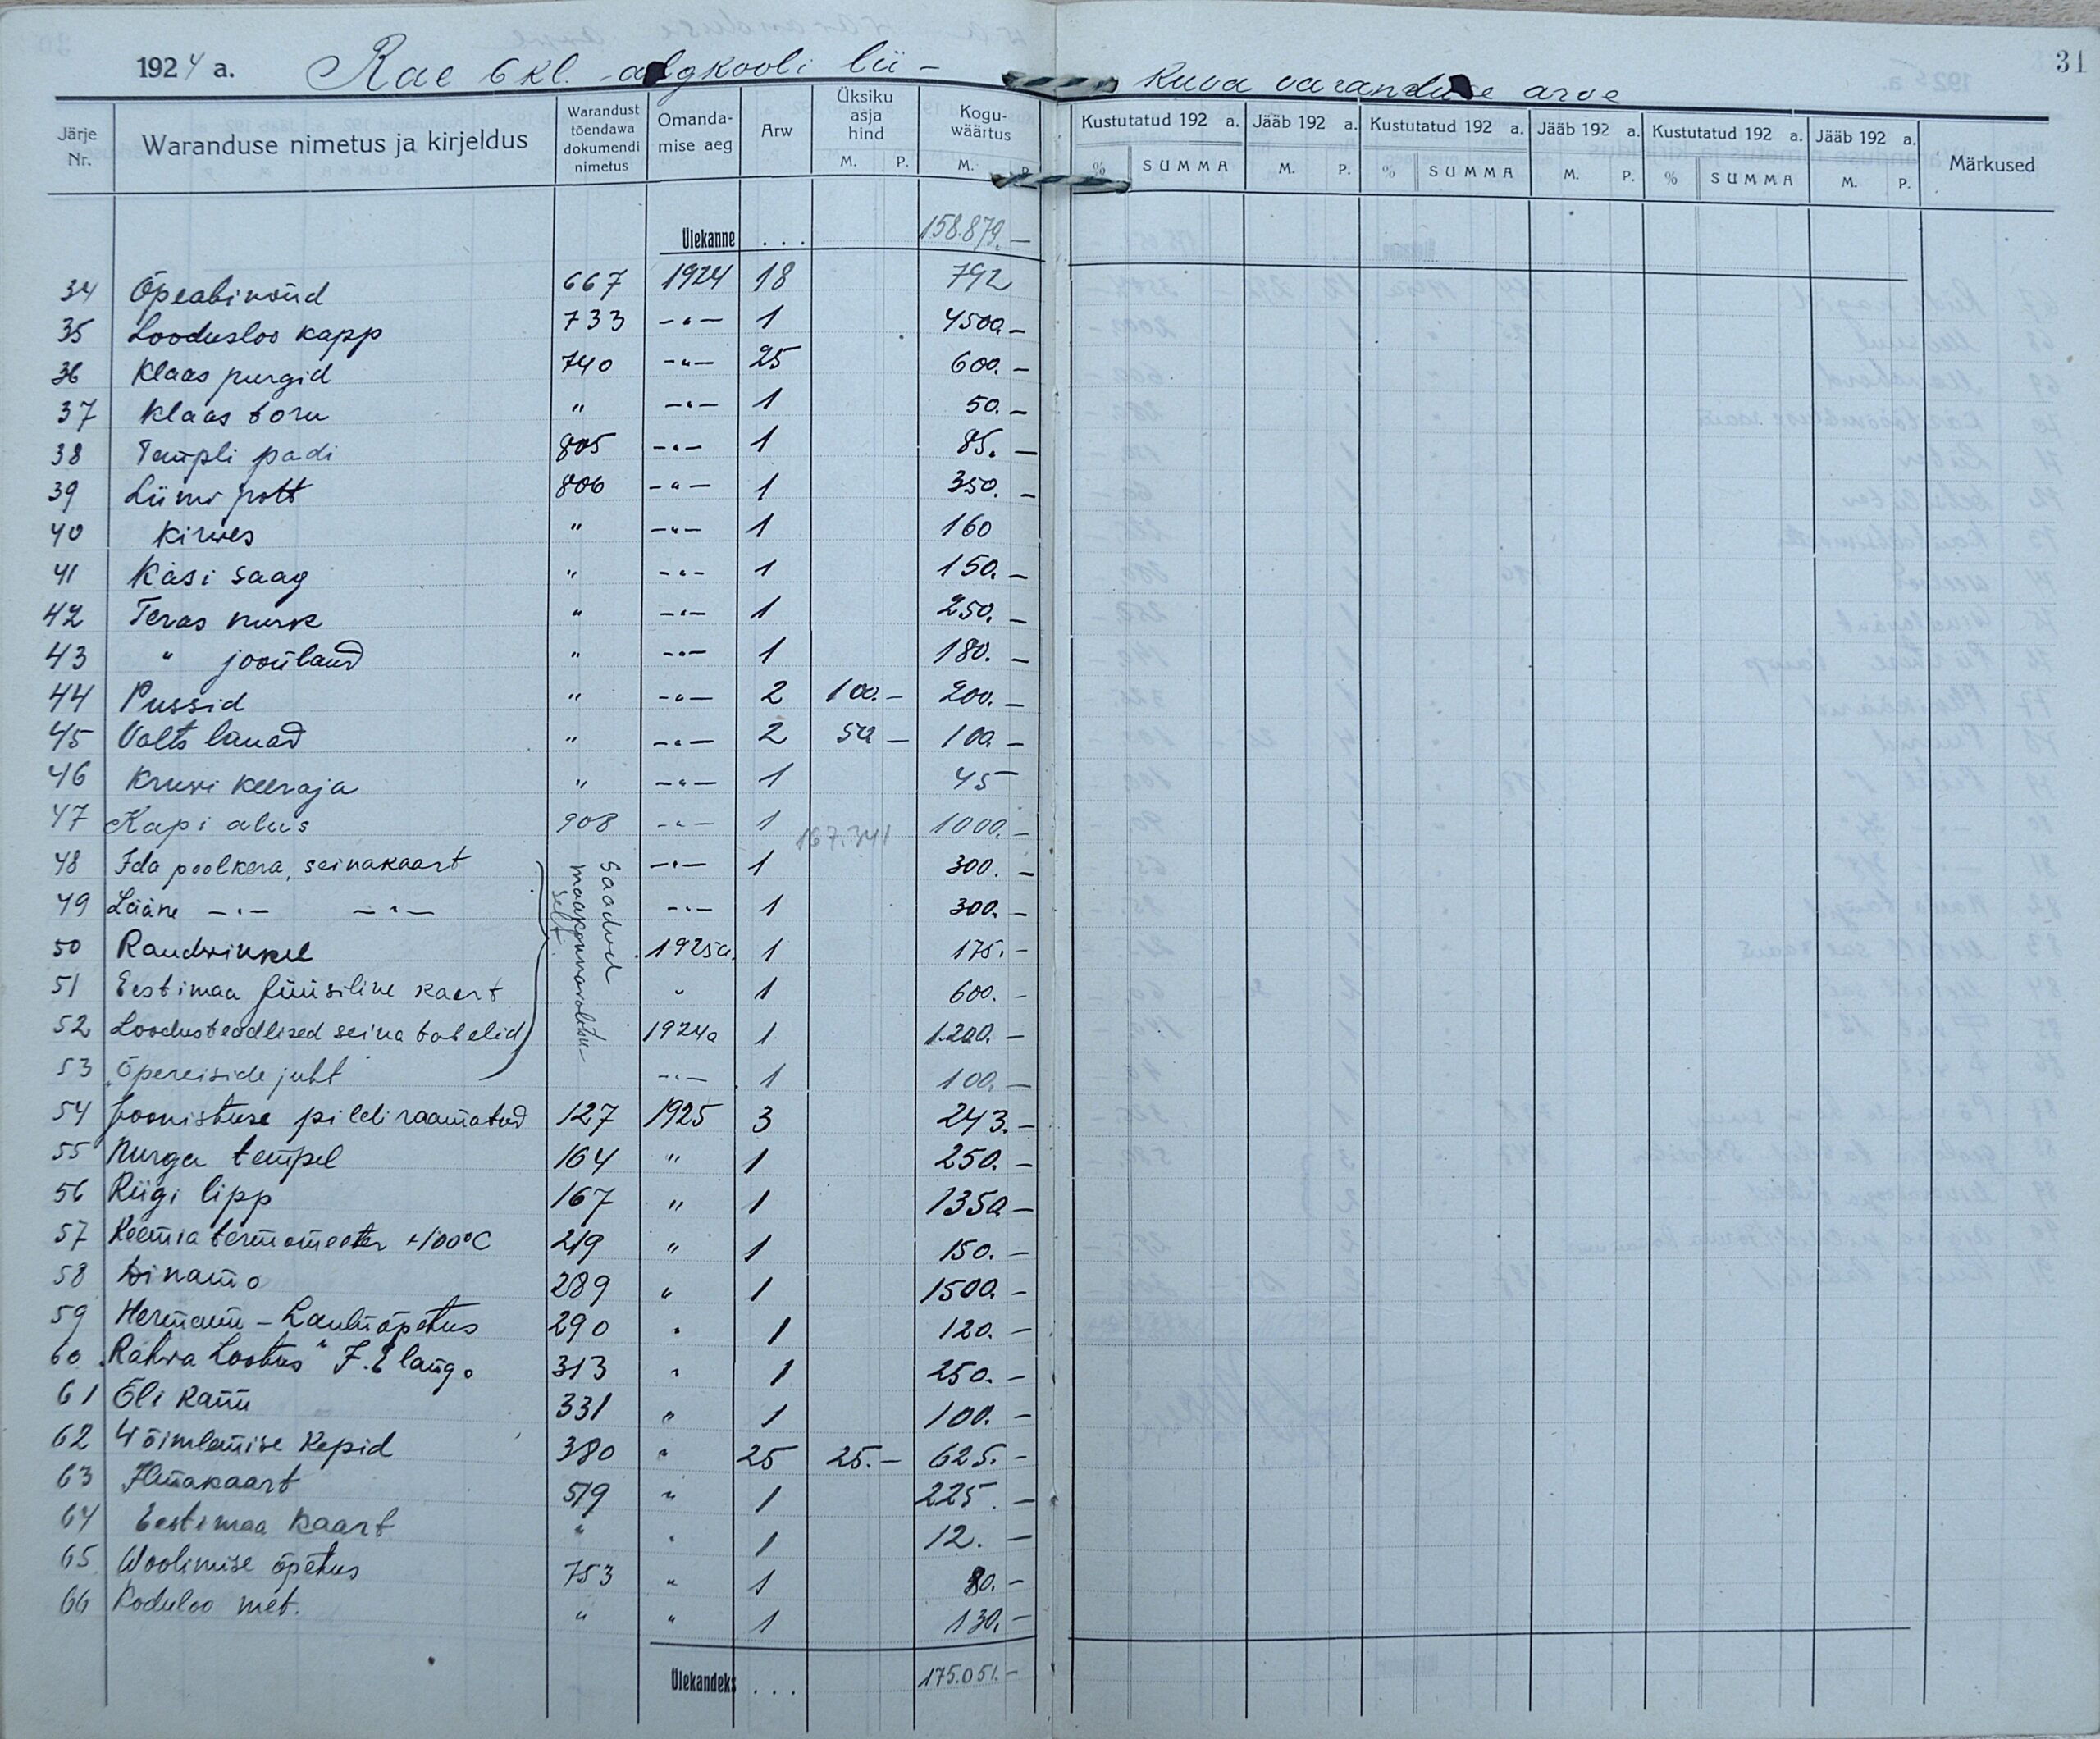 1924 a. Rae 6 kl. algkooli lii-
kuva varanduse arve 31
Järje Nr. Waranduse nimetus ja kirjeldus Warandust tõendawa dokumendi nimetus Omandamise aeg Arw Üksiku asja hind M. P. Koguwäärtus M. P.
Kustutatud 192 a. % SUMMA Jääb 192 a. M. P. Kustutatud 192 a. % SUMMA Jääb 192 a. M. P. Kustutatud 192 a. % SUMMA Jääb 192 a. M. P. Märkused
Ülekanne . . . 158.879.—
34 Õpeabinõud 667 1924 18 792
35 Loodusloo kapp 733 -"- 1 4500.—
36 Klaas purgid 740 -"- 25 600.—
37 Klaas toru " -"- 1 50.—
38 Templi padi 805 -"- 1 85.—
39 Liimi pott 806 -"- 1 350.—
40 Kirves " -"- 1 160
41 Käsi saag " -"- 1 150.—
42 Teras nurk " -"- 1 250.—
43 " joonlaud " -"- 1 180.—
44 Pussid " -"- 2 100.— 200.—
45 Valts lauad " -"- 2 50.— 100.—
46 Kruvi keeraja " -"- 1 45
47 Kapi alus 908 -"- 1 1000.—
167.341
48 Ida poolkera, seinakaart -"- 1 300.—
49 Lääne -"- -"- -"- 1 300.—
Saadud maakonnavalitsuselt
50 Raudwinkel 1925a. 1 175.—
51 Eestimaa füüsiline kaart " 1 600.—
52 Loodusteadlised seina tabelid 1924a 1 1.200.—
53 Õpereiside juht -"- 1 100.—
54 Joonistuse pildi raamatud 127 1925 3 243.—
55 Nurga tempel 164 " 1 250.—
56 Riigi lipp 167 " 1 1350.—
57 Keemia termomeeter +100°C 219 " 1 150.—
58 Dinamo 289 " 1 1500.—
59 Hermann - Lauluõpetus 290 " 1 120.—
60 "Rahva Lootus" J. Elango 313 " 1 250.—
61 Õli kann 331 " 1 100.—
62 Wõimlemise kepid 380 " 25 25.— 625.—
63 Ilmakaart 519 " 1 225.—
64 Eestimaa kaart " " 1 12.—
65 Woolimise õpetus 753 " 1 80.—
66 Koduloo met. " " 1 130.—
Ülekandeks . . . 175.051.—